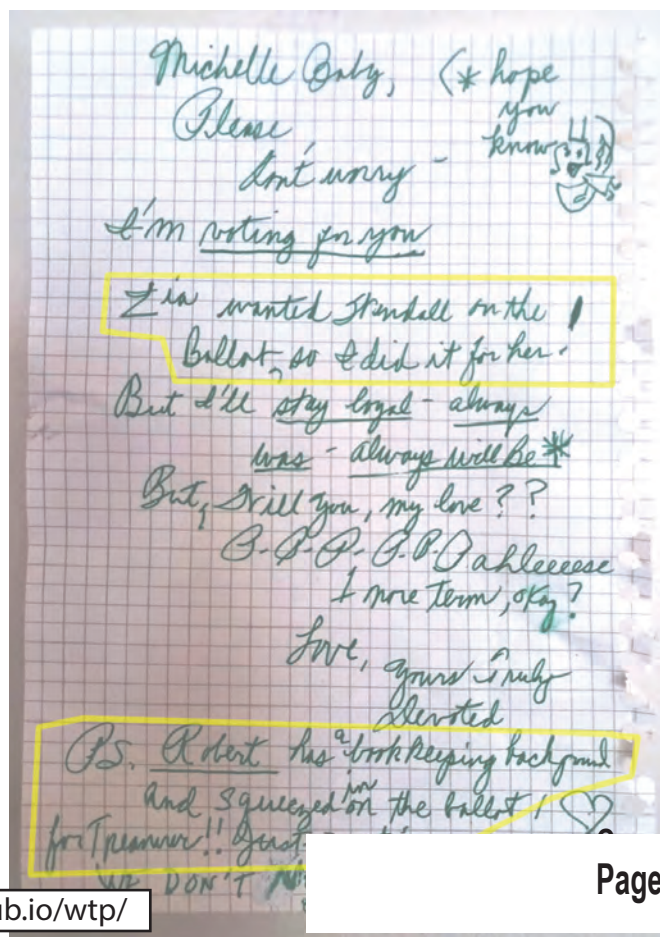 Michelle Baby, (* hope
you
know
Please
don't worry -
I'm voting for you
Zia wanted Kendall on the !
Ballot, so I did it for her.
But I'll stay loyal - always
was - always will Be *
But, Will you, my love ? ?
P-P-P-P-P-Pahleeeese
1 more Term, okay ?
Love,
Yours Truly
Devoted
P.S. Robert has a bookkeeping background
and squeezed in on the ballot !
for Treasurer!! Just
We DON'T
Page
ub.io/wtp/